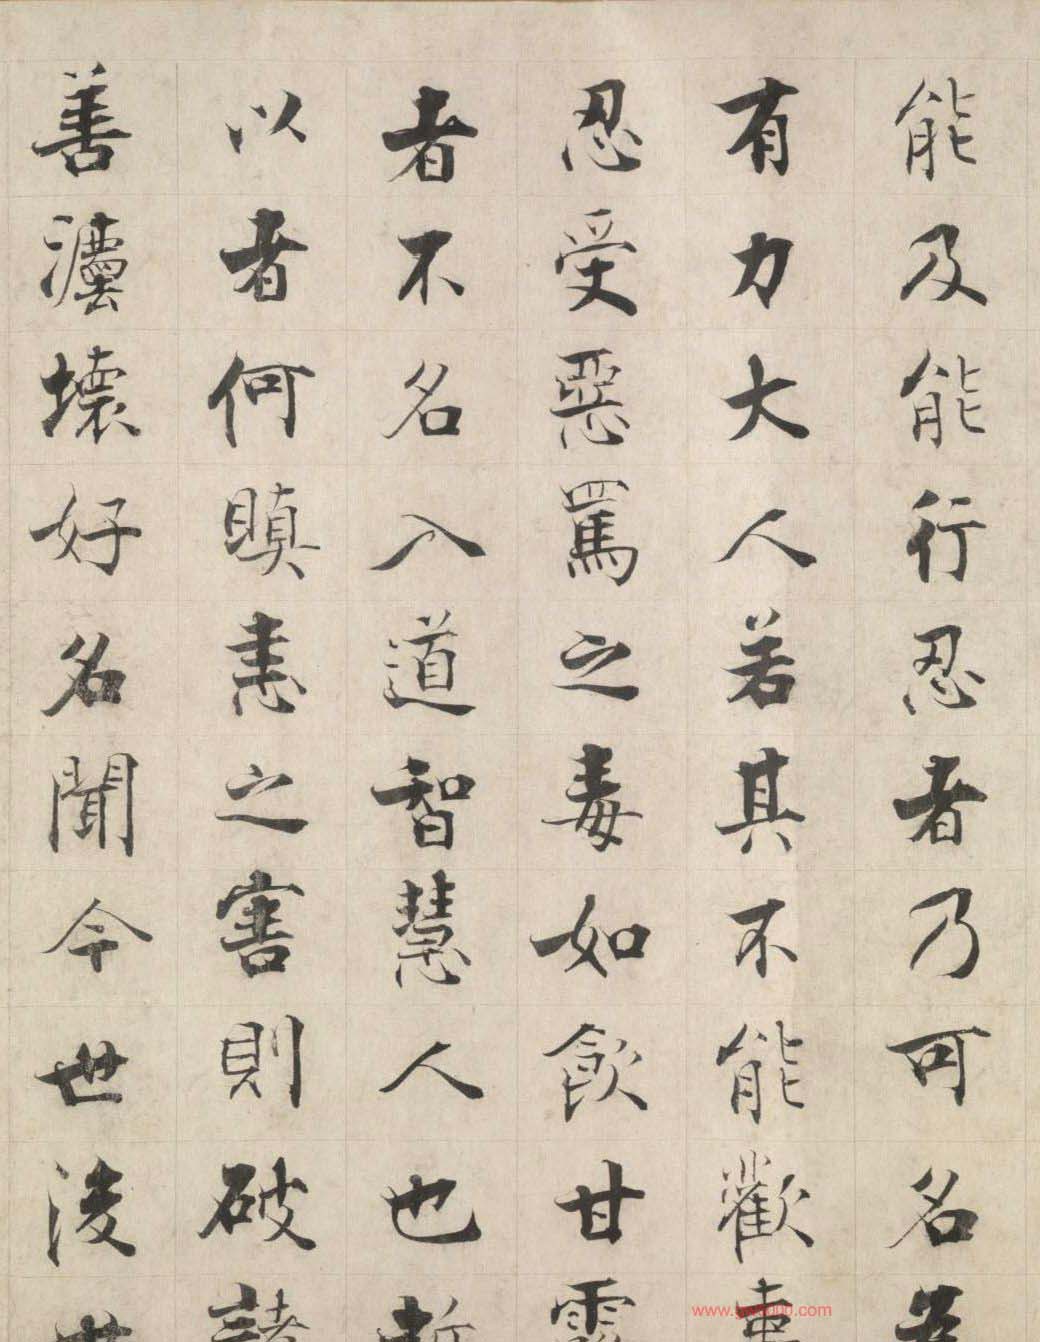 能及能行忍者乃可名為
有力大人若其不能歡
忍受惡罵之毒如飲甘露
者不名入道智慧人也所
以者何瞋恚之害則破諸
善灋壞好名聞今世後世